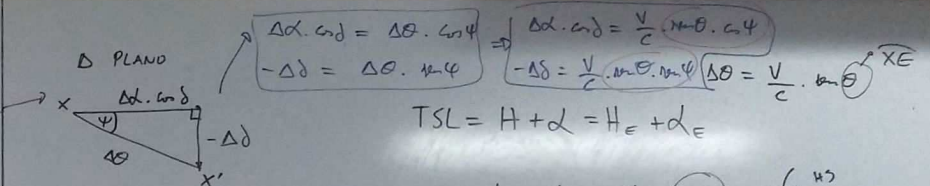 Δ PLANO
X
Δα·cosδ
ψ
Δθ
-Δδ
X'
Δα·cosδ = Δθ·cosψ
-Δδ = Δθ·senψ
⇒
Δα·cosδ = V/c·senθ·cosψ
-Δδ = V/c·senθ·senψ
Δθ = V/c·senθ
XE
TSL = H + α = H_E + α_E
HS